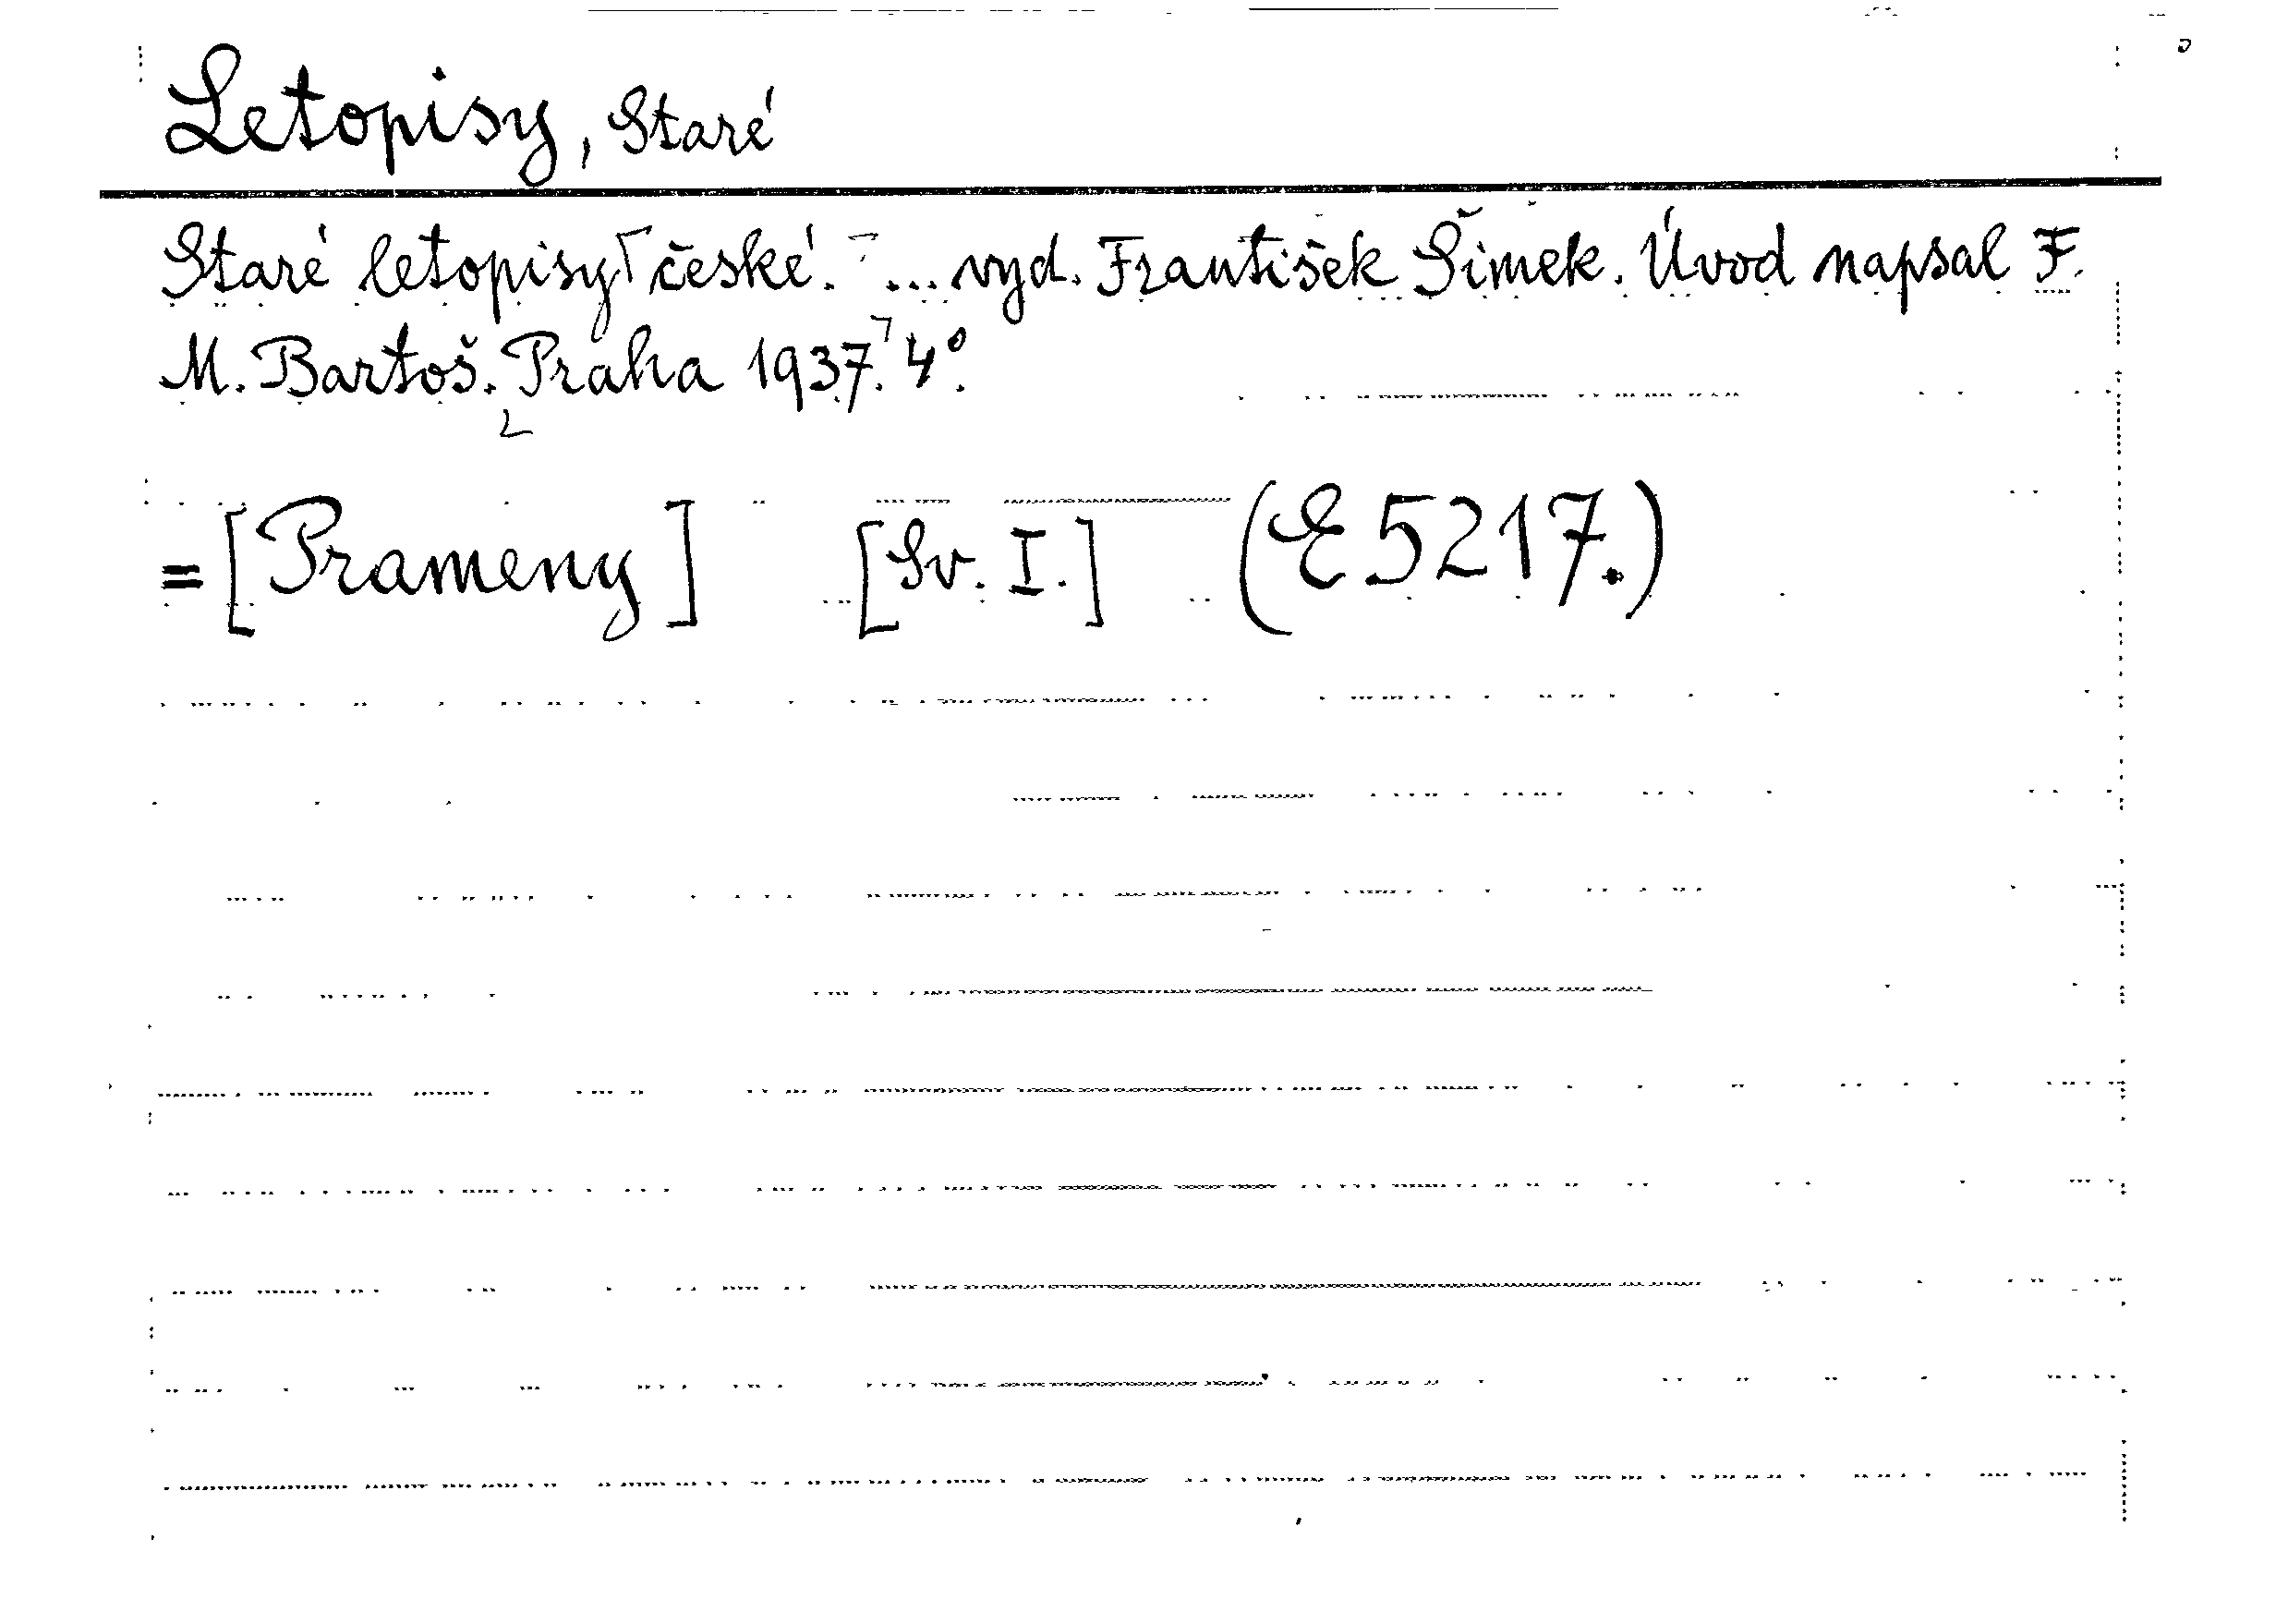 Letopisy, Staré
Staré letopisy české. ... vyd. František Šimek. Úvod napsal F.
M. Bartoš. Praha 1937. 4°.
= [Prameny] [Sv. I.] (E 5217.)